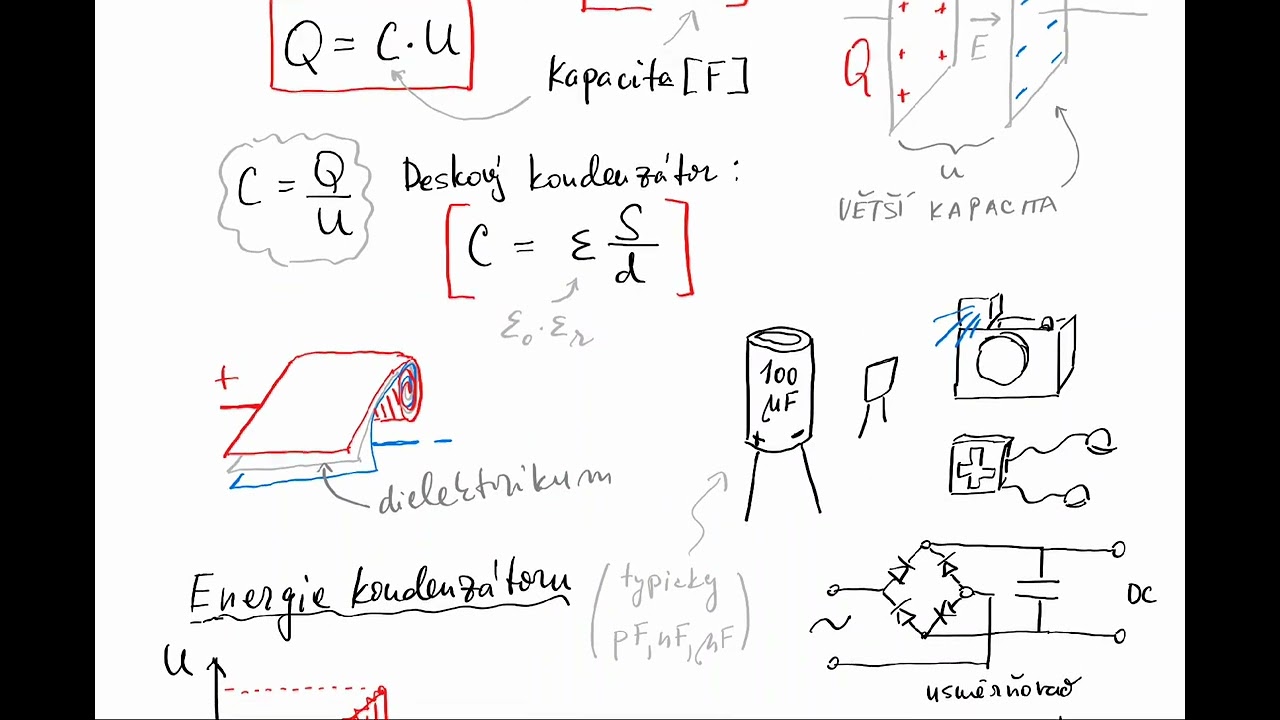 Q = C·U
Kapacita [F]
Q
+ +
+ +
+
E
u
VĚTŠÍ KAPACITA
C = Q/U
Deskový kondenzátor:
C = ε S/d
ε₀·εᵣ
+
-
dielektrikum
100
μF
+ -
Energie kondenzátoru
(typicky
pF, nF, μF)
~
DC
usměrňovač
U